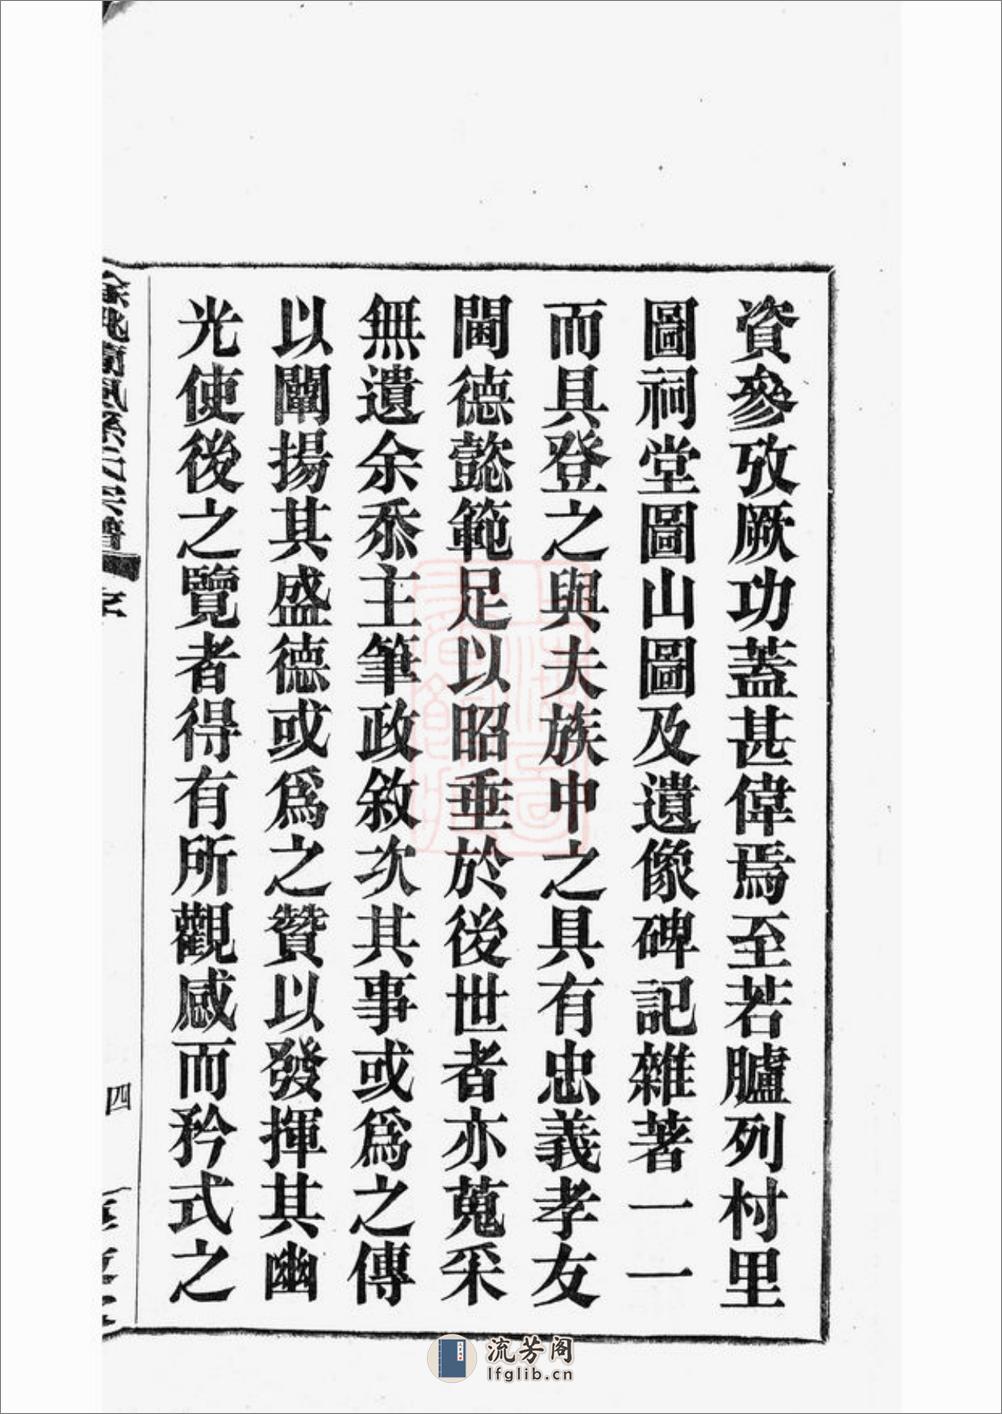 資參攷厥功蓋甚偉焉至若臚列村里
圖祠堂圖山圖及遺像碑記雜著一一
而具登之與夫族中之具有忠義孝友
閫德懿範足以昭垂於後世者亦蒐采
無遺余忝主筆政敘次其事或爲之傳
以闡揚其盛德或爲之贊以發揮其幽
光使後之覽者得有所觀感而矜式之
餘姚蘭風孫氏宗譜
序
四
流芳阁
lfglib.cn